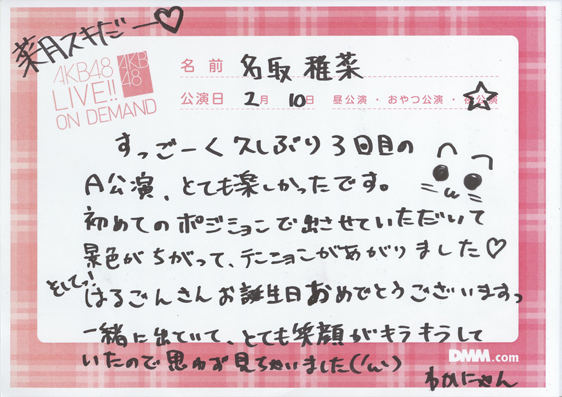 葉月スキだー♡
AKB48
LIVE!!
ON DEMAND
AKB
48
名前 名取稚菜
公演日 2月 10日 昼公演・おやつ公演・夜公演
すっごーく久しぶり3回目の
A公演、とても楽しかったです。
初めてのポジションで出させていただいて
景色がちがって、テンションがあがりました♡
そしてっ!
はるごんさんお誕生日おめでとうございますっ
一緒に出ていて、とても笑顔がキラキラして
いたので思わず見ちゃいました('ω')
わかにゃん
DMM.com